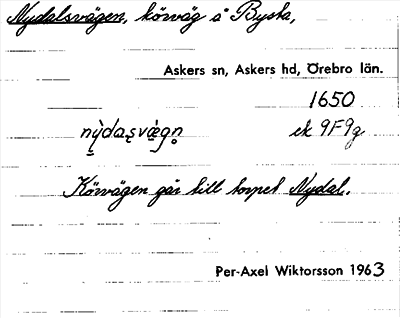 Nydalsvägen, körväg å Bysta,
Askers sn, Askers hd, Örebro län.
1650
nỳdaʂvæ̀gn̥ ek 9F9g
Körvägen går till torpet Nydal.
Per-Axel Wiktorsson 1963